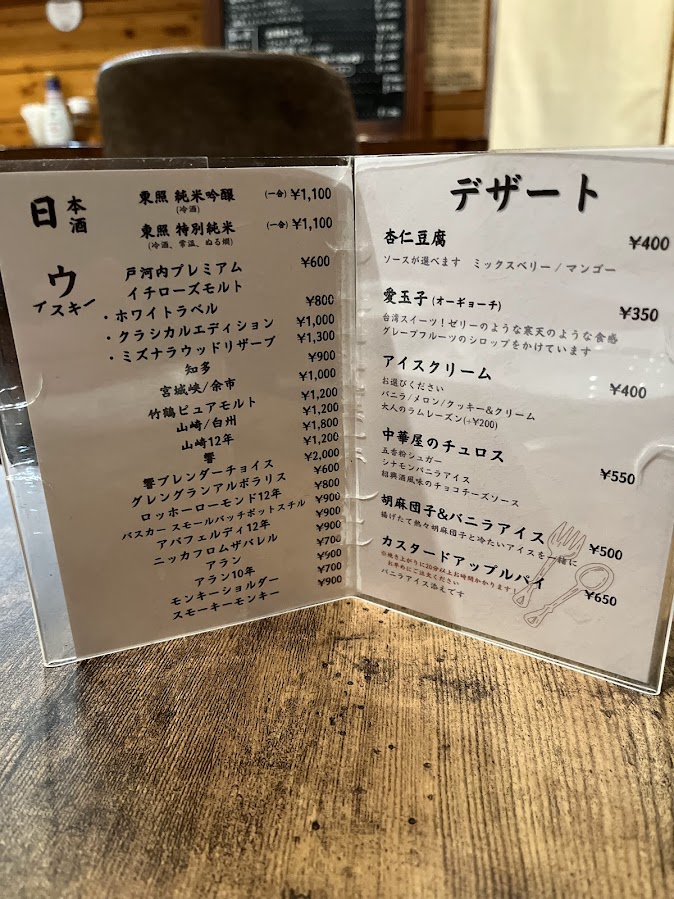 日本酒
東照 純米吟醸 (一合) ¥1,100
(冷酒)
東照 特別純米 (一合) ¥1,100
(冷酒、常温、ぬる燗)
ウイスキー
戸河内プレミアム ¥600
イチローズモルト
・ホワイトラベル ¥800
・クラシカルエディション ¥1,000
・ミズナラウッドリザーブ ¥1,300
知多 ¥900
宮城峡/余市 ¥1,000
竹鶴ピュアモルト ¥1,200
山崎/白州 ¥1,200
山崎12年 ¥1,800
響 ¥1,200
響ブレンダーチョイス ¥2,000
グレングランアルボラリス ¥600
ロッホローモンド12年 ¥800
バスカー スモールバッチポットスチル ¥900
アバフェルディ12年 ¥900
ニッカフロムザバレル ¥900
アラン ¥700
アラン10年 ¥900
モンキーショルダー ¥700
スモーキーモンキー ¥900
デザート
杏仁豆腐 ¥400
ソースが選べます ミックスベリー / マンゴー
愛玉子(オーギョーチ) ¥350
台湾スイーツ！ゼリーのような寒天のような食感
グレープフルーツのシロップをかけています
アイスクリーム ¥400
お選びください
バニラ/メロン/クッキー&クリーム
大人のラムレーズン(+¥200)
中華屋のチュロス ¥550
五香粉シュガー
シナモンバニラアイス
紹興酒風味のチョコチーズソース
胡麻団子&バニラアイス ¥500
揚げたて熱々胡麻団子と冷たいアイスを一緒に
カスタードアップルパイ ¥650
※焼き上がりに20分以上お時間かかります！
お早めにご注文ください！
バニラアイス添えです